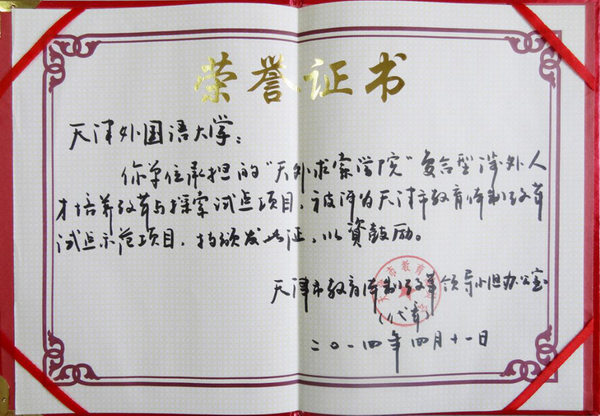 荣誉证书
天津外国语大学：
你单位承担的“天外求索学院”复合型涉外人
才培养改革与探索试点项目，被评为天津市教育体制改革
试点示范项目，特颁发此证，以资鼓励。
天津市教育体制改革领导小组办公室
（代章）
二〇一四年四月十一日